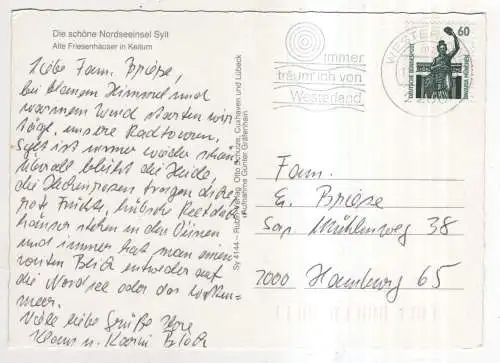 Die schöne Nordseeinsel Sylt
Alte Friesenhäuser in Keitum
Liebe Fam. Briese,
bei blauem Himmel und
warmem Wind starten wir
tägl. unsere Radtouren.
Sylt ist immer wieder schön
überall blüht die Heide,
die Heckenrosen tragen dicke
rote Früchte, hübsche Reetdach
häuser stehen in den Dünen
und immer hat man einen
weiten Blick entweder auf
die Nordsee oder das Watten-
meer.
Viele liebe Grüße Ihre
Klaus u. Karin Bloch
Sy 4144 – Otto Cuxhaven und Lübeck
Aufnahme Günter Gräfenhain
immer
träum ich von
Westerland
60
Fam.
E. Briese
Sap. Mühlenweg 38
2000 Hamburg 65